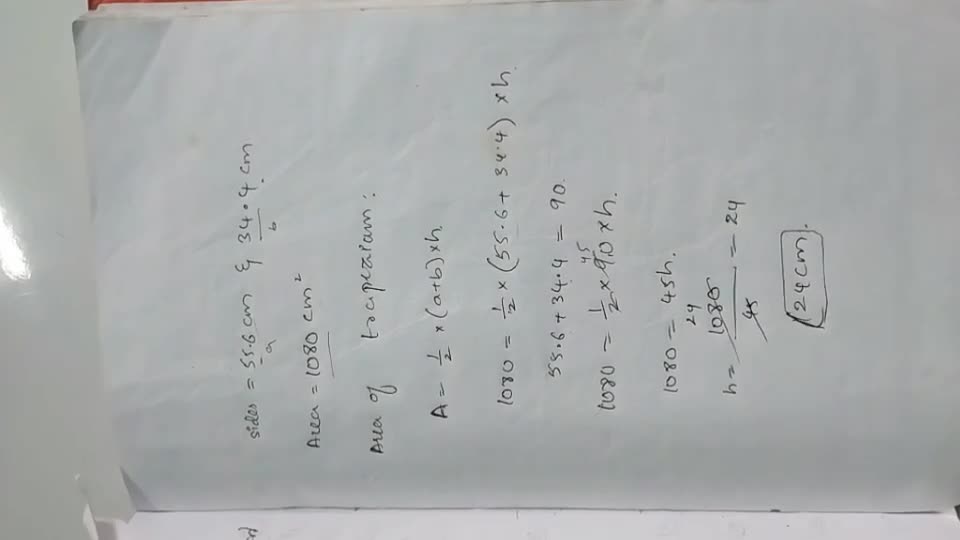 sides = 55.6 cm & 34.4 cm
a b
Area = 1080 cm²
Area of trapeziam:
A = 1/2 × (a+b) × h
1080 = 1/2 × (55.6 + 34.4) × h.
55.6 + 34.4 = 90.
45
1080 = 1/2 × 90 × h.
1080 = 45h.
24
h = 1080/45 = 24
24cm.